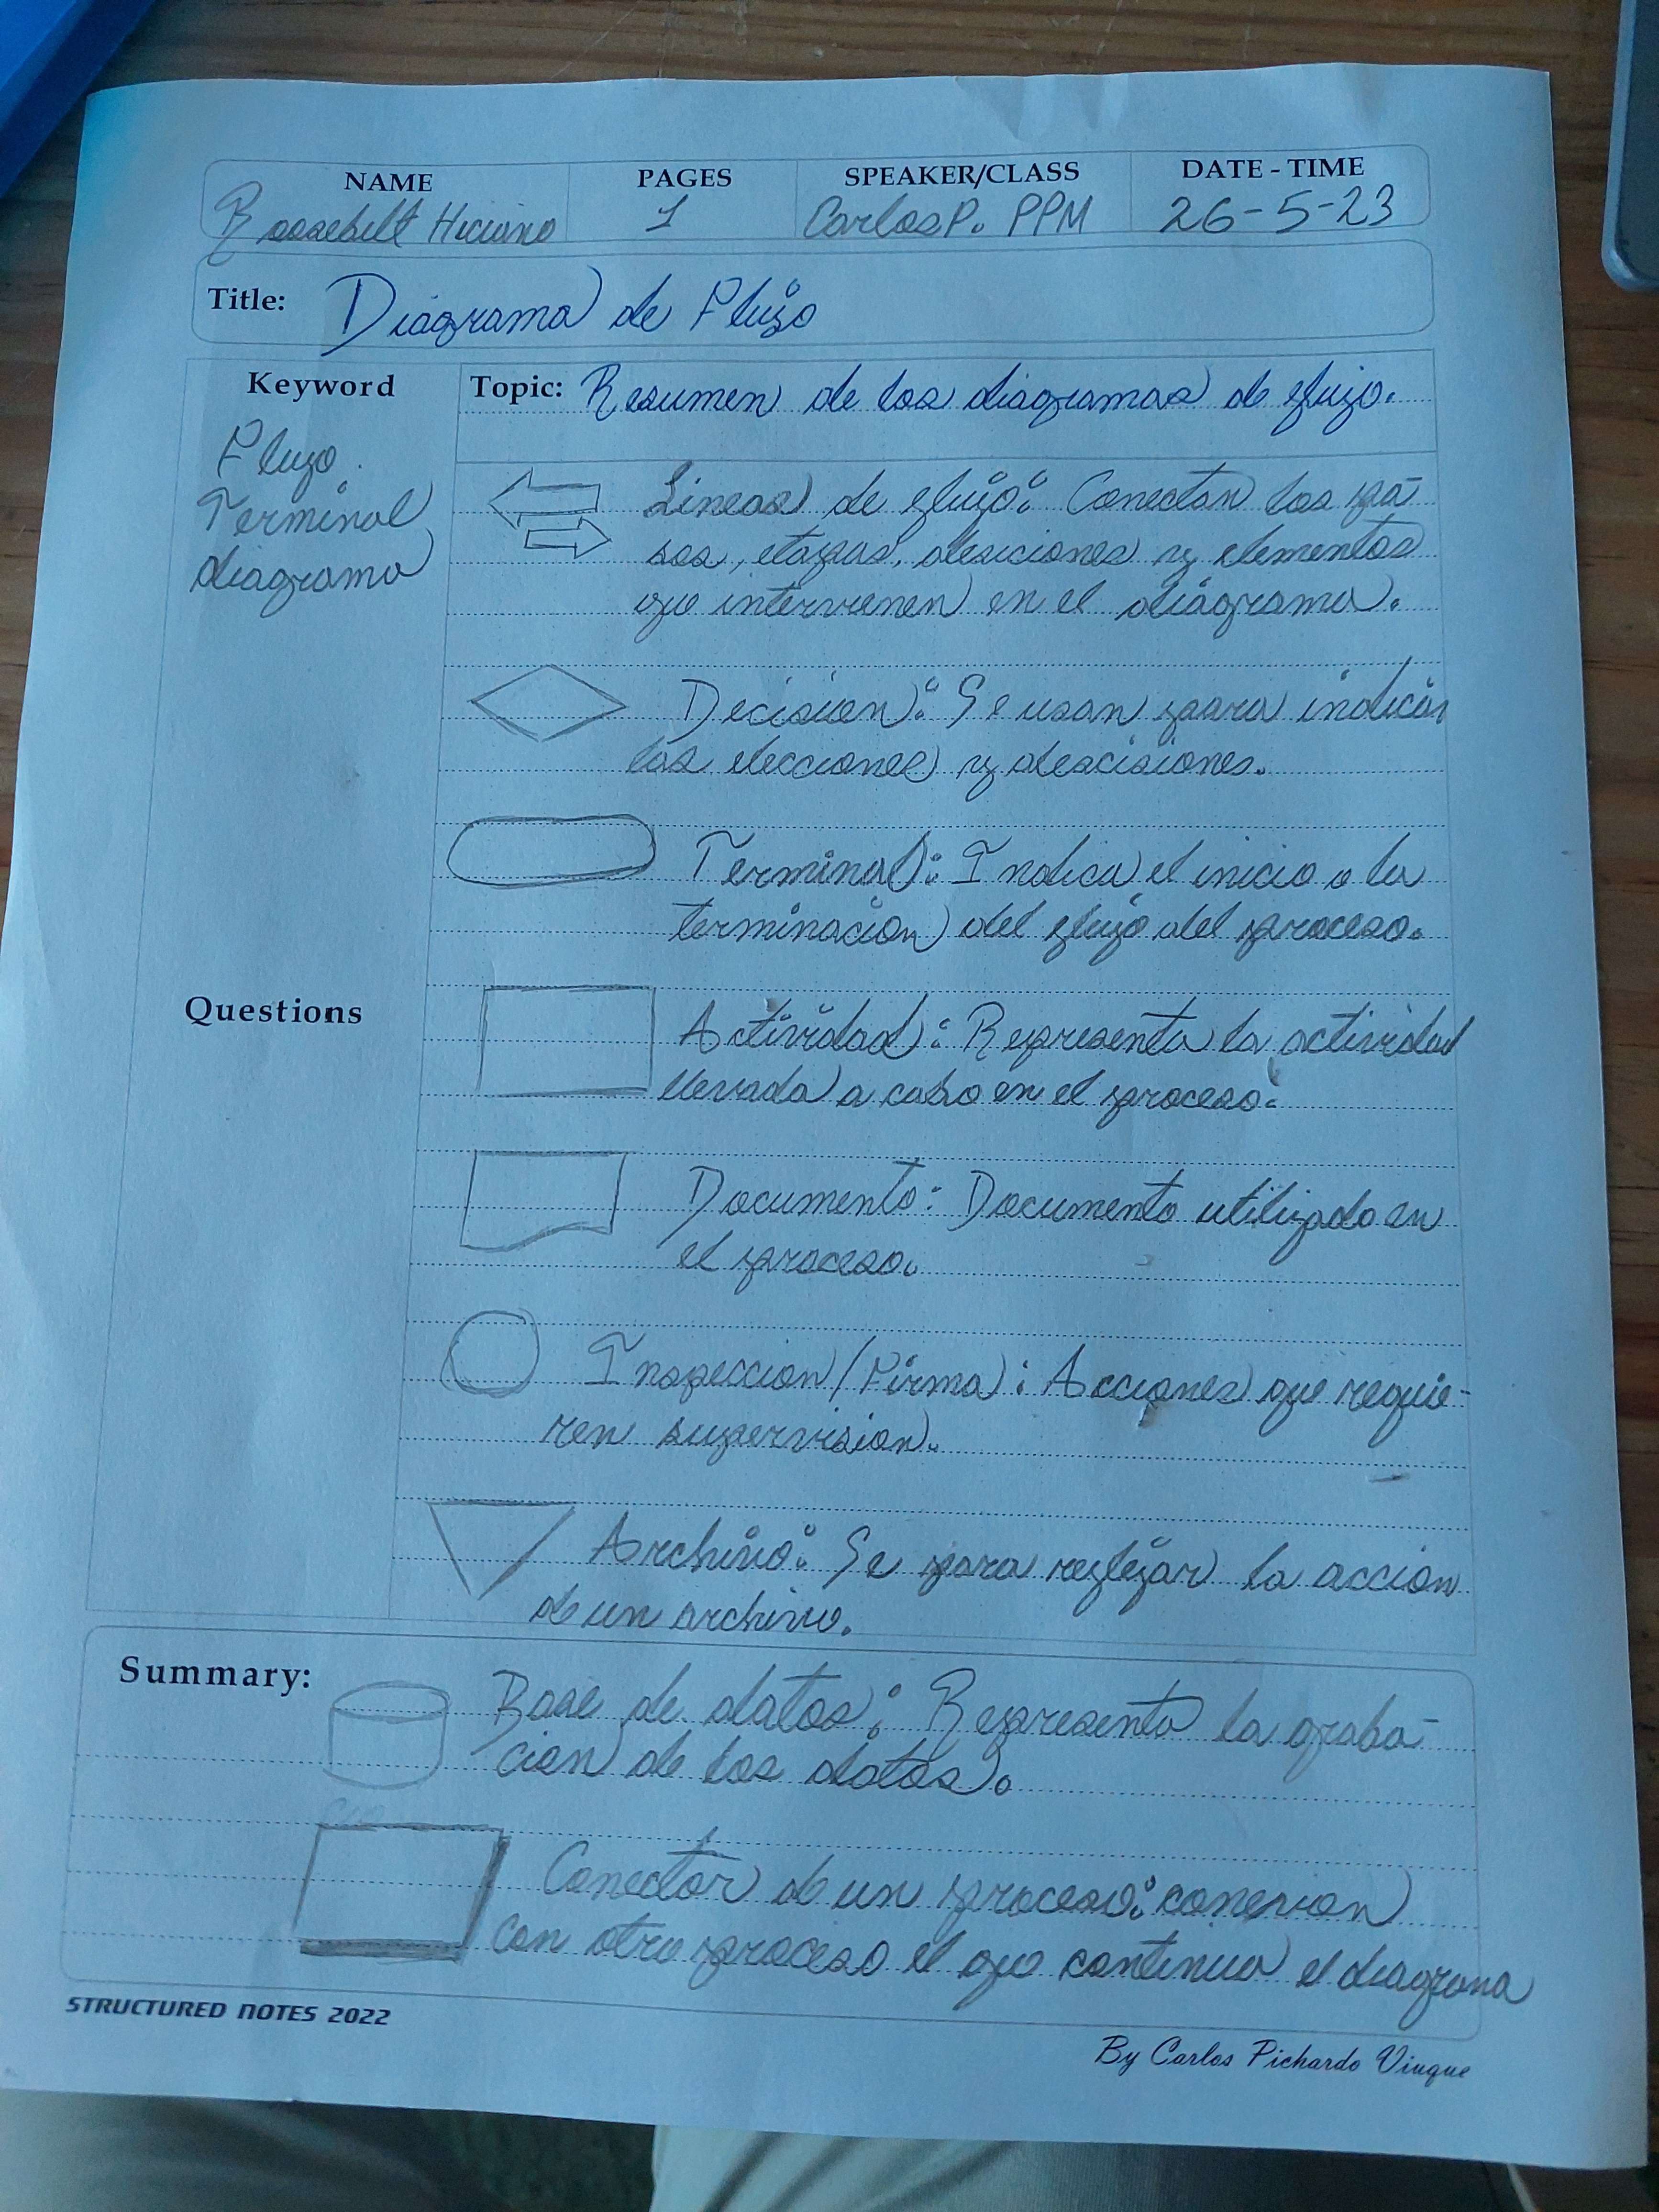 NAME PAGES SPEAKER/CLASS DATE - TIME
Roosebelt Hiciano 1 Carlos P. PPM 26-5-23
Title: Diagrama de Flujo
Keyword
Topic: Resumen de los diagramas de flujo.
Flujo.
Terminal
diagrama
Lineas de flujo: Conectan los pa-
sos, etapas, desiciones y elementos
que intervienen en el diagrama.
Decision: Se usan para indicar
las elecciones y descisiones.
Terminal: Indica el inicio o la
terminacion del flujo del proceso.
Questions
Actividad: Representa la actividad
llevada a cabo en el proceso.
Documento: Documento utilizado en
el proceso.
Inspeccion/Firma: Acciones que requie-
ren supervision.
Archivo: Se para reflejar la accion
de un archivo.
Summary:
Base de datos: Representa la graba-
cion de los datos.
Conector de un proceso: conexion
con otro proceso el que continua el diagrama
STRUCTURED NOTES 2022
By Carlos Pichardo Viuque